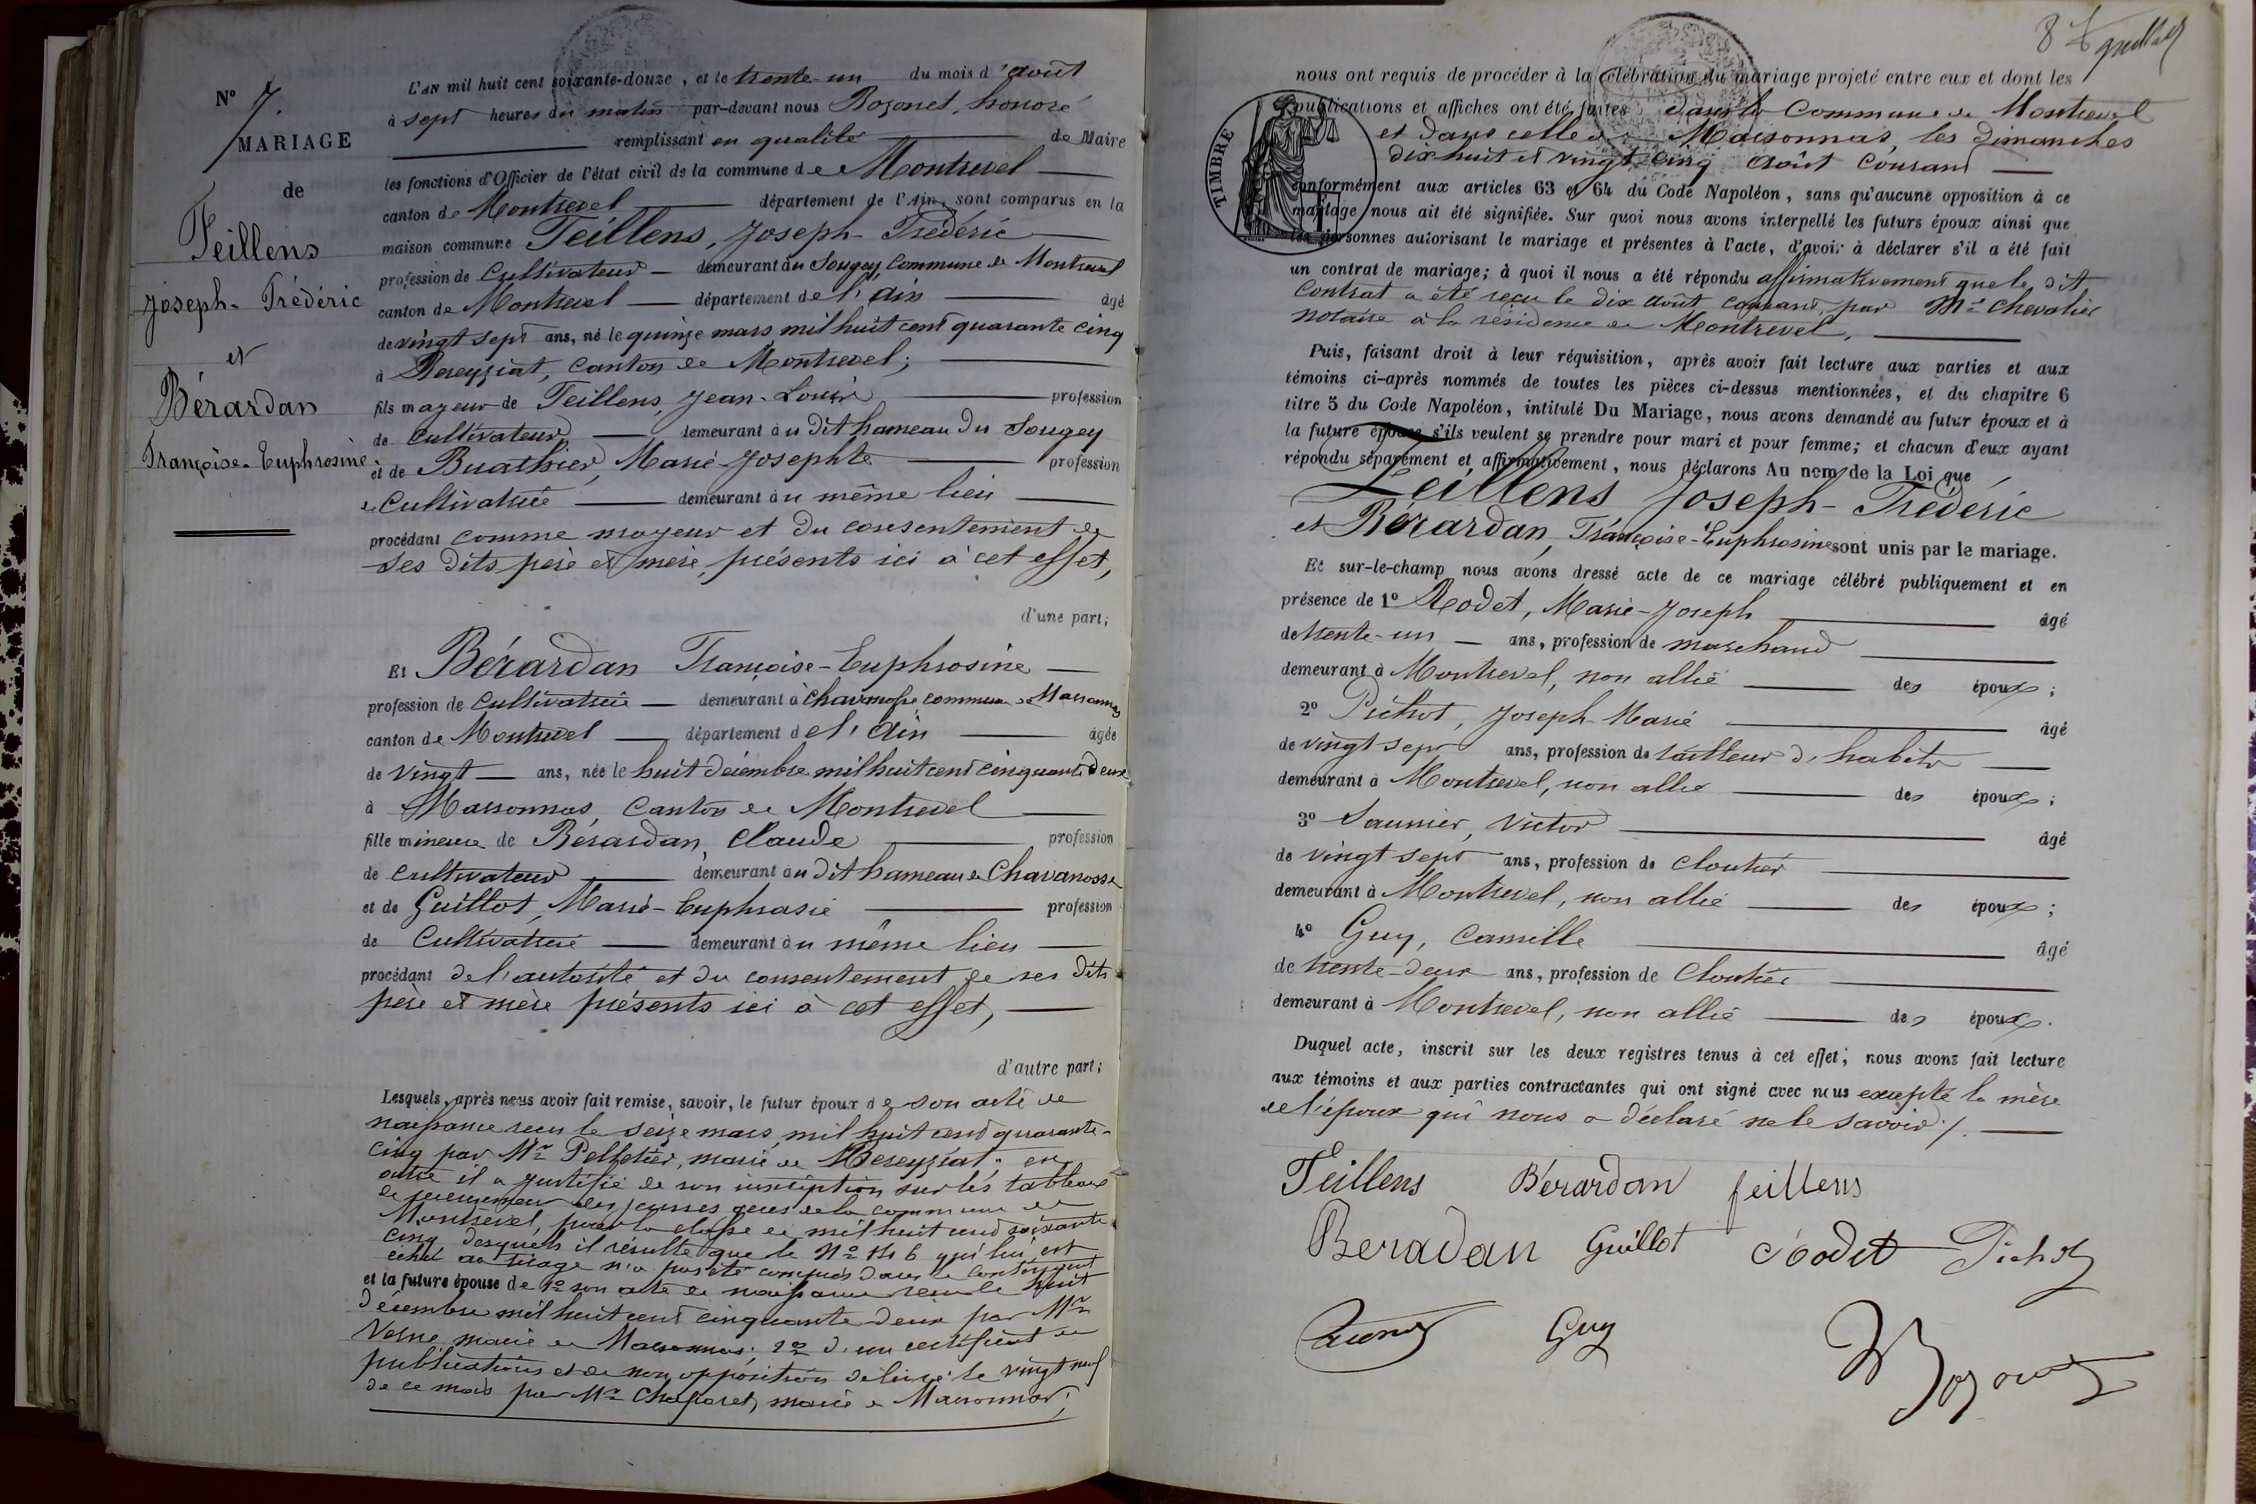 N° 7.
MARIAGE
de
Feillens
Joseph-Frédéric
et
Bérardan
Françoise-Euphrosine.
L'AN mil huit cent soixante-douze, et le trente-un du mois d'août
à sept heures du matin par-devant nous Bozonet, honoré
remplissant en qualité de Maire
les fonctions d'Officier de l'état civil de la commune de Montrevel
canton de Montrevel département de l'Ain, sont comparus en la
maison commune Feillens, Joseph-Frédéric
profession de Cultivateur demeurant au Sougey, Commune de Montrevel
canton de Montrevel département de l'Ain âgé
de vingt sept ans, né le quinze mars mil huit cent quarante cinq
à Béreyziat, canton de Montrevel;
fils mayeur de Feillens, Jean-Louis profession
de cultivateur demeurant au dit hameau du Sougey
et de Buathier, Marie-Josephte profession
de Cultivatrice demeurant au même lieu
procédant comme mayeur et du consentement de
ses dits père et mère, présents ici à cet effet,
d'une part;
Et Bérardan Françoise-Euphrosine
profession de Cultivatrice demeurant à Chavanosse commune de Marsonnas
canton de Montrevel département de l'Ain âgée
de vingt ans, née le huit décembre mil huit cent cinquante deux
à Marsonnas, Canton de Montrevel
fille mineure de Bérardan, Claude profession
de cultivateur demeurant au dit hameau de Chavanosse
et de Guillot, Marie-Euphrasie profession
de Cultivatrice demeurant au même lieu
procédant de l'autorité et du consentement de ses dits
père et mère présents ici à cet effet,
d'autre part;
Lesquels, après nous avoir fait remise, savoir, le futur époux de son acte de
naissance reçu le seize mars mil huit cent quarante-
cinq par Mr Pelletier, maire de Béreyziat; en
outre il a justifié de son inscription sur les tableaux
de recensement des jeunes gens de la commune de
Montrevel, pour la classe de mil huit cent soixante
cinq desquels il résulte que le N° 146 qui lui est
échu au tirage n'a pas été compris dans le contingent
et la future épouse de 1° son acte de naissance reçu le huit
décembre mil huit cent cinquante-deux par Mr
maire de Marsonnas; 2° d'un certificat de
publications et de non opposition délivré le vingt neuf
de ce mois par Mr maire de Marsonnas;
8
nous ont requis de procéder à la célébration du mariage projeté entre eux et dont les
publications et affiches ont été faites dans la Commune de Montrevel
et dans celle de Marsonnas, les dimanches
dix huit et vingt-cinq Août Courant
TIMBRE
conformément aux articles 63 et 64 du Code Napoléon, sans qu'aucune opposition à ce
mariage nous ait été signifiée. Sur quoi nous avons interpellé les futurs époux ainsi que
les personnes autorisant le mariage et présentes à l'acte, d'avoir à déclarer s'il a été fait
un contrat de mariage; à quoi il nous a été répondu affirmativement que le dit
Contrat a été reçu le dix août courant, par Me Chevalier
notaire à la résidence de Montrevel,
Puis, faisant droit à leur réquisition, après avoir fait lecture aux parties et aux
témoins ci-après nommés de toutes les pièces ci-dessus mentionnées, et du chapitre 6
titre 5 du Code Napoléon, intitulé Du Mariage, nous avons demandé au futur époux et à
la future épouse s'ils veulent se prendre pour mari et pour femme; et chacun d'eux ayant
répondu séparément et affirmativement, nous déclarons Au nom de la Loi que
Feillens Joseph-Frédéric
et Bérardan, Françoise-Euphrosine sont unis par le mariage.
Et sur-le-champ nous avons dressé acte de ce mariage célébré publiquement et en
présence de 1° Rodet, Marie-Joseph âgé
de trente-un ans, profession de marchand
demeurant à Montrevel, non allié des époux;
2° Joseph-Marie âgé
de vingt sept ans, profession de tailleur d'habits
demeurant à Montrevel, non allié des époux;
3° Saunier, Victor âgé
de vingt sept ans, profession de cloutier
demeurant à Montrevel, non allié des époux;
4° Guy, Camille âgé
de trente-deux ans, profession de Cloutier
demeurant à Montrevel, non allié des époux.
Duquel acte, inscrit sur les deux registres tenus à cet effet; nous avons fait lecture
aux témoins et aux parties contractantes qui ont signé avec nous excepté la mère
de l'époux qui nous a déclaré ne le savoir /.
Feillens Bérardan feillens
Beradan Guillot Rodet
Guy